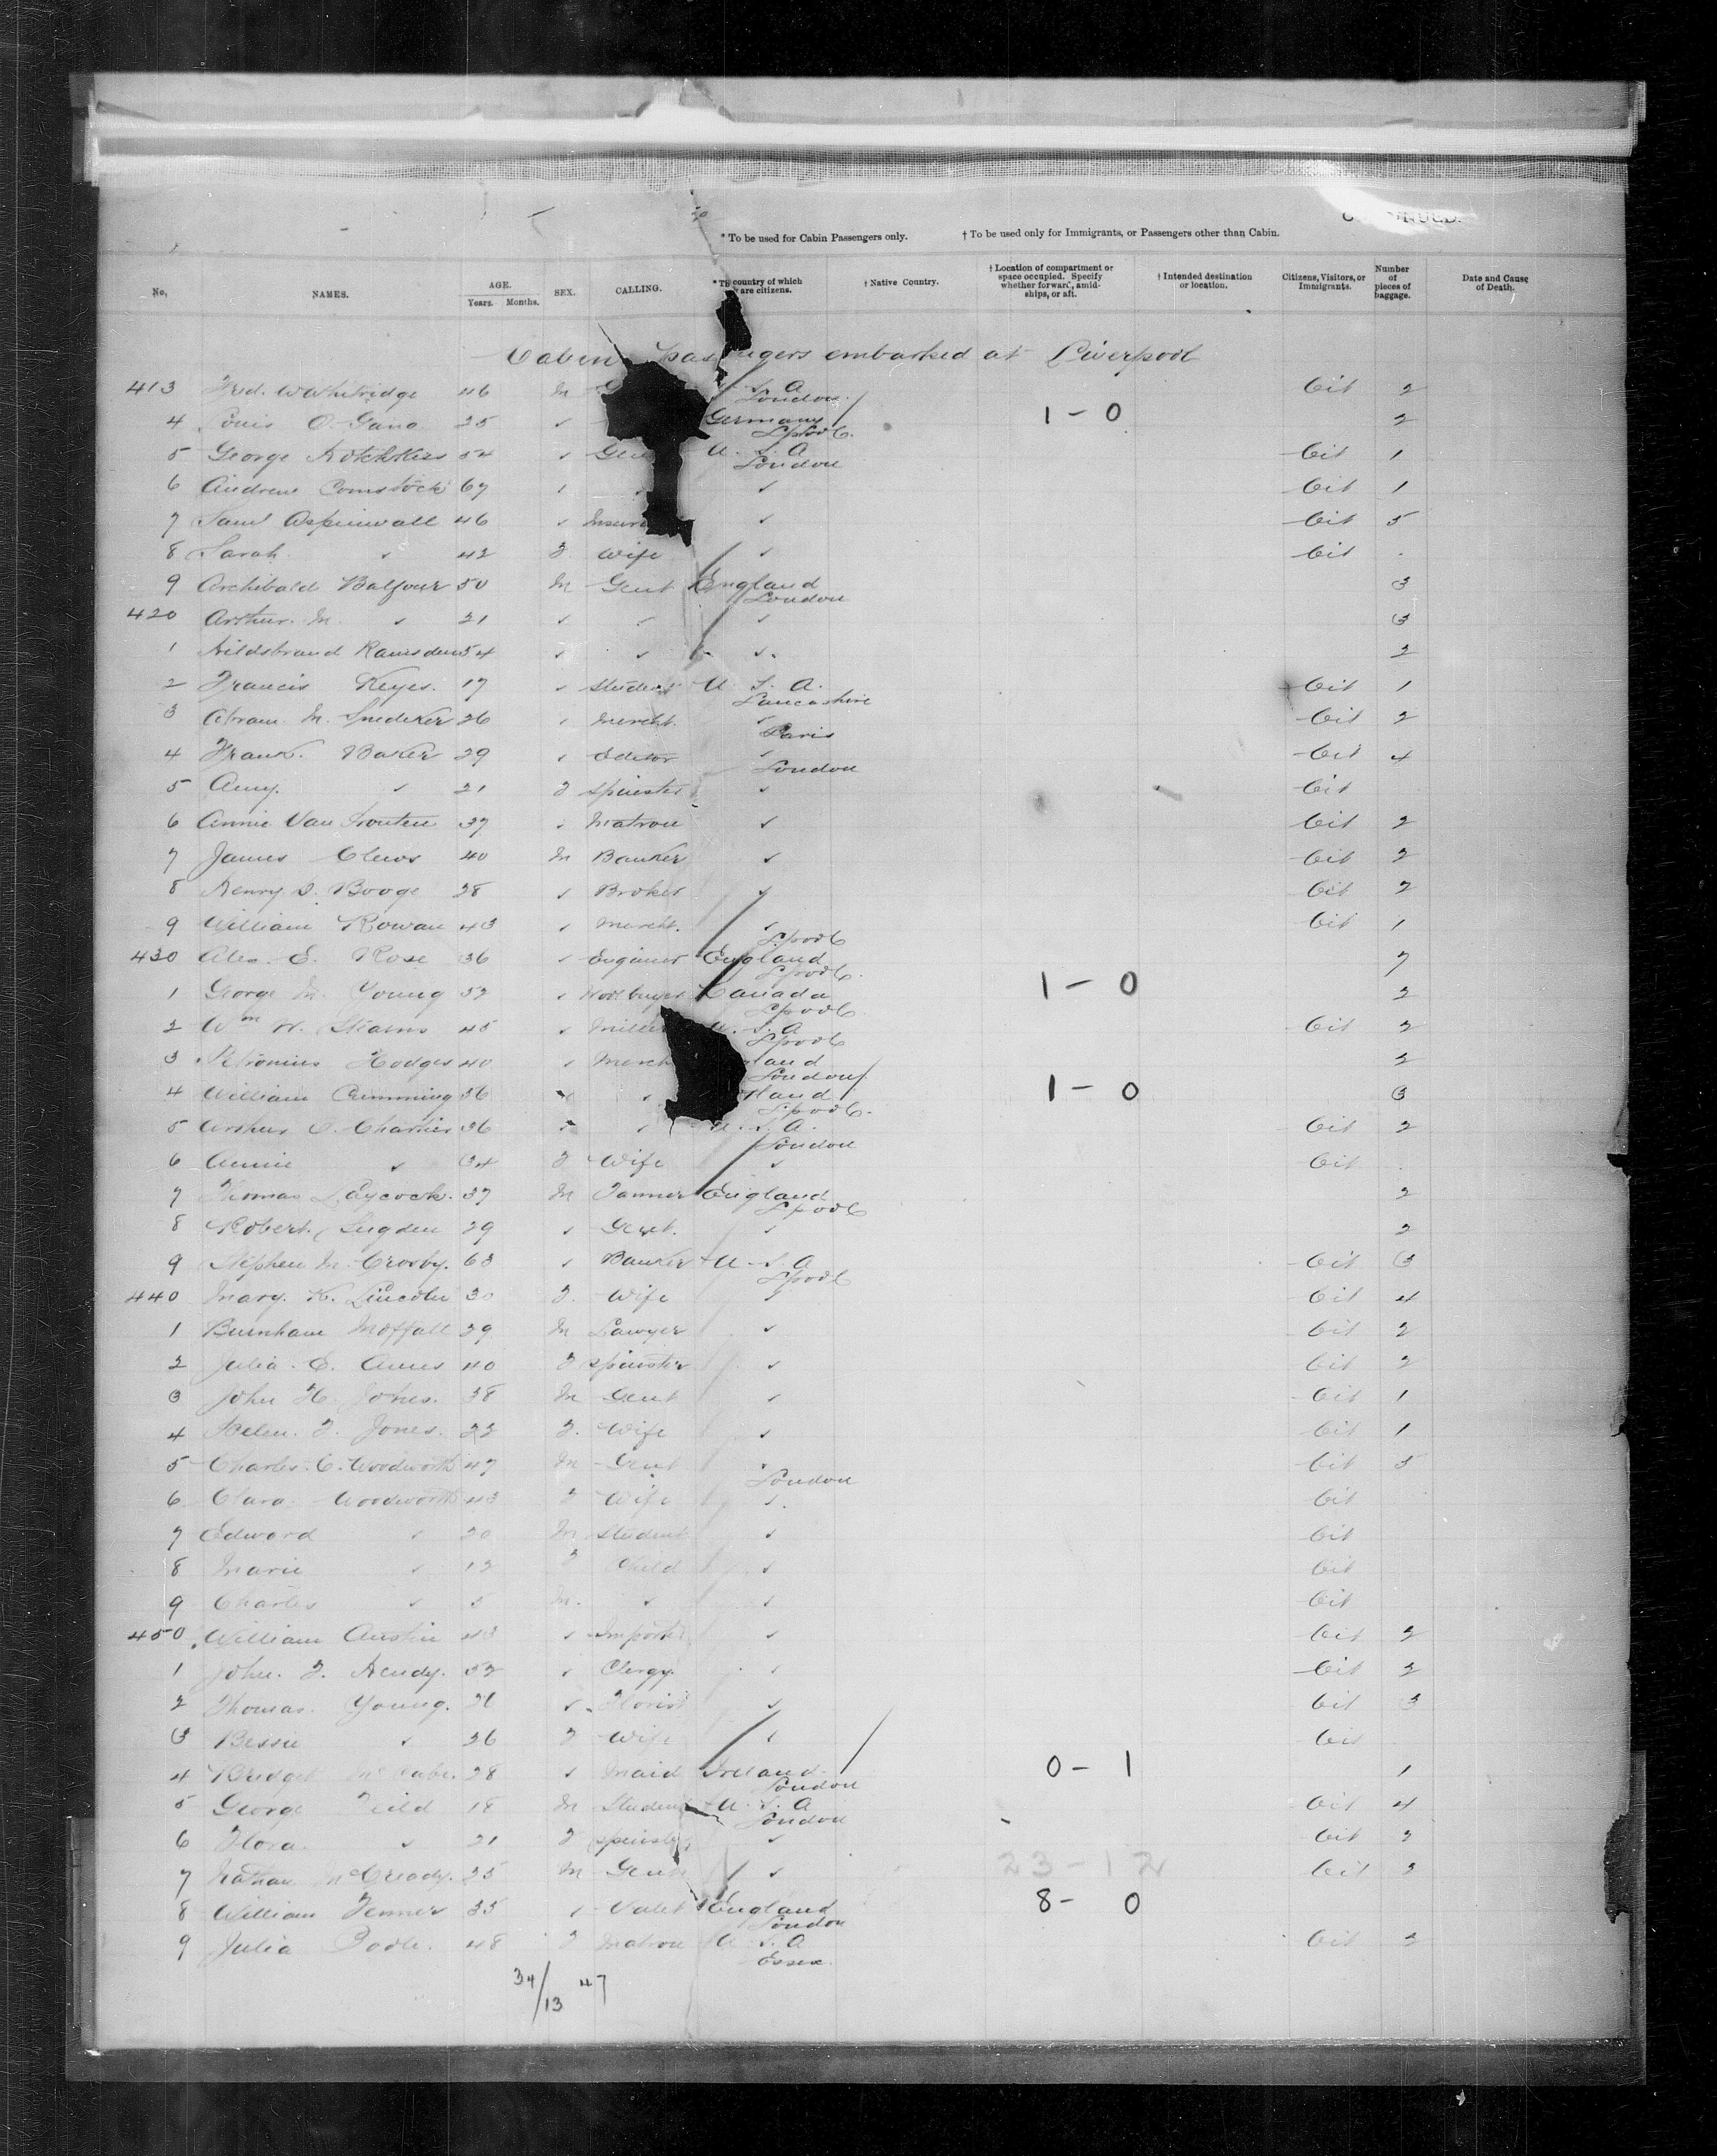 * To be used for Cabin Passengers only. † To be used only for Immigrants, or Passengers other than Cabin.
No. NAMES. AGE. Years. Months. SEX. CALLING. country of which are citizens. † Native Country. † Location of compartment or space occupied. Specify whether forward, amidships, or aft. † Intended destination or location. Citizens, Visitors, or Immigrants. Number of pieces of baggage. Date and Cause of Death.
Cabin embarked at Liverpool
413 Fred. W Whitridge 46 M S. A Cit 2
London
4 Louis O. Gana 25 ✓ Germany 1 - 0 2
Lpool
5 George Hotchkiss 54 ✓ U. S. A Cit 1
London
6 Andrew Comstock 67 ✓ ✓ Cit 1
7 Saml Aspinwall 46 ✓ ✓ Cit 5
8 Sarah ✓ 42 F Wife ✓ Cit
9 Archibald Balfour 50 M Gent England 3
London
420 Arthur. M. ✓ 21 ✓ ✓ ✓ 3
1 Hildsbrand Ramsden 54 ✓ ✓ ✓ 2
2 Francis Keyes. 17 ✓ Student U. S. A. Cit 1
Lancashire
3 Abram. M. Snedeker 26 ✓ Mercht. ✓ Cit 2
Paris
4 Frank. Baker 29 ✓ Editor ✓ Cit 4
London
5 Amy. ✓ 21 F Spinster ✓ Cit
6 Annie Van Houten 37 ✓ Matron ✓ Cit 2
7 James Clews 40 M Banker ✓ Cit 2
8 Henry Booge 28 ✓ Broker ✓ Cit 2
9 William Rowan 43 ✓ Mercht. ✓ Cit 1
Lpool
430 Alex. E. Rose 36 ✓ Engineer England 7
Lpool
1 George M. Young 52 ✓ Canada 1 - 0 2
Lpool
2 Wm W. Stearns 45 ✓ U. S. A Cit 2
Lpool
3 Hodges 40 ✓ land 2
London
4 William Cumming 36 ✓ ✓ land 1 - 0 3
Lpool.
5 Arthur Charrier 36 ✓ ✓ U. S. A. Cit 2
London
6 Annie ✓ 34 F Wife ✓ Cit
7 Thomas Laycock. 37 M Tanner England 2
Lpool
8 Robert. Sugden 29 ✓ Gent. ✓ 2
9 Stephen M. Crosby. 63 ✓ Banker U. S. A Cit 3
Lpool
440 Mary. K. Lincoln 30 F. Wife ✓ Cit 4
1 Burnham Moffatt 29 M Lawyer ✓ Cit 2
2 Julia. E. Ames 40 F Spinster ✓ Cit 2
3 John H. Jones. 38 M Gent ✓ Cit 1
4 Helen. F. Jones. 33 F. Wife ✓ Cit 1
5 Charles. C. Woodworth 47 M Gent Cit 5
London
6 Clara Woodworth 43 F Wife ✓ Cit
7 Edward ✓ 20 M Student ✓ Cit
8 Marie ✓ 12 F Child ✓ Cit
9 Charles ✓ 5 M. ✓ ✓ Cit
450 William Austin 43 ✓ Importer ✓ Cit 2
1 John. F. Hendy. 52 ✓ Clergy. ✓ Cit 2
2 Thomas. Young. ✓ Florist ✓ Cit 3
3 Bessie ✓ 26 F Wife ✓ Cit
4 Bridget McCabe. 28 ✓ Maid Ireland 0 - 1 1
London
5 George Feild 18 M Student U. S. A Cit 4
London
6 Flora ✓ 21 F Spinster ✓ Cit 2
7 Nathan McCready. 25 M Gent ✓ 23-12 Cit 2
8 William Fenner 35 ✓ Valet England 8 - 0
London
9 Julia 48 F Matron U. S. A Cit 2
Essex.
34/13 47